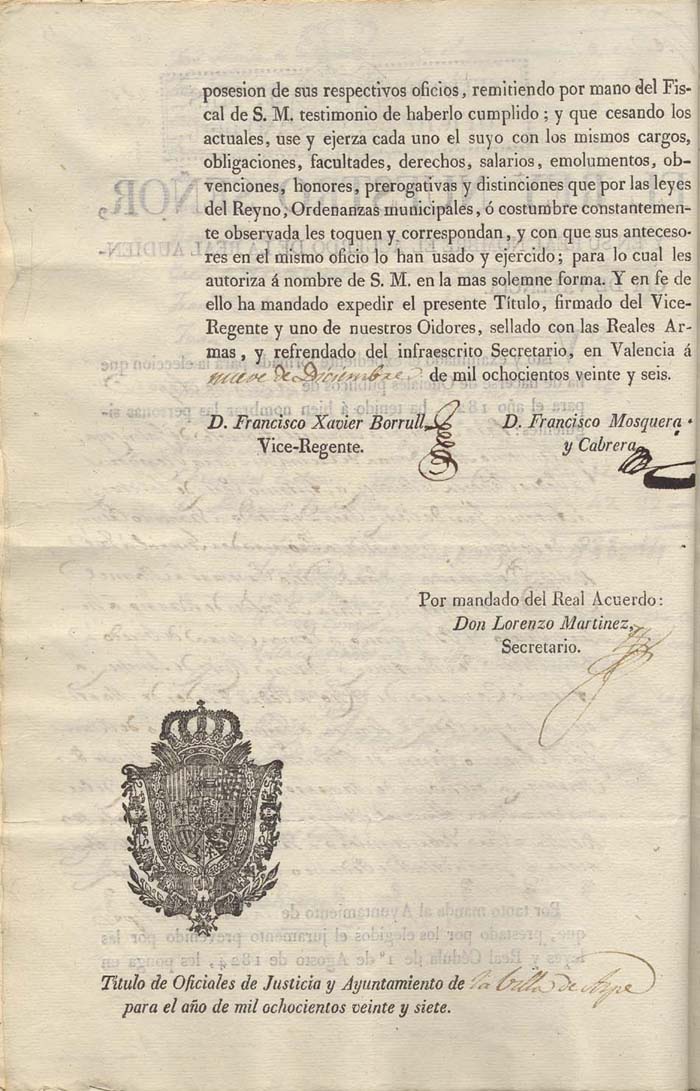 posesion de sus respectivos oficios, remitiendo por mano del Fis-
cal de S. M. testimonio de haberlo cumplido; y que cesando los
actuales, use y ejerza cada uno el suyo con los mismos cargos,
obligaciones, facultades, derechos, salarios, emolumentos, ob-
venciones, honores, prerogativas y distinciones que por las leyes
del Reyno, Ordenanzas municipales, ó costumbre constantemen-
te observada les toquen y correspondan, y con que sus anteceso-
res en el mismo oficio lo han usado y ejercido; para lo cual les
autoriza á nombre de S. M. en la mas solemne forma. Y en fe de
ello ha mandado expedir el presente Título, firmado del Vice-
Regente y uno de nuestros Oidores, sellado con las Reales Ar-
mas, y refrendado del infraescrito Secretario, en Valencia á
nueve de Diciembre de mil ochocientos veinte y seis.
D. Francisco Xavier Borrull
Vice-Regente.
D. Francisco Mosquera
y Cabrera
Por mandado del Real Acuerdo:
Don Lorenzo Martinez,
Secretario.
Título de Oficiales de Justicia y Ayuntamiento de la Villa de Aspe
para el año de mil ochocientos veinte y siete.